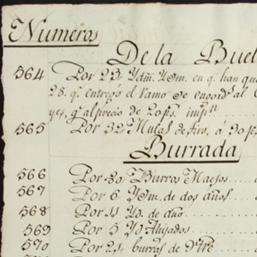 Numeros
De la Buel
564 Por 23 Ydm. Ydm. en q. han qu
28. q.e entregó el Ramo de engord al
yes, al precio de 20 p.s imp.n
565 Por 32 Mulas de tiro, á 30 ps
Burrada
566 Por 30 Burros Maesos
567 Por 6 Ydm. de dos años
568 Por 11 Yd. de año
569 Por 5 Yd. Ahijados
570 Por 21 burras de V.tre